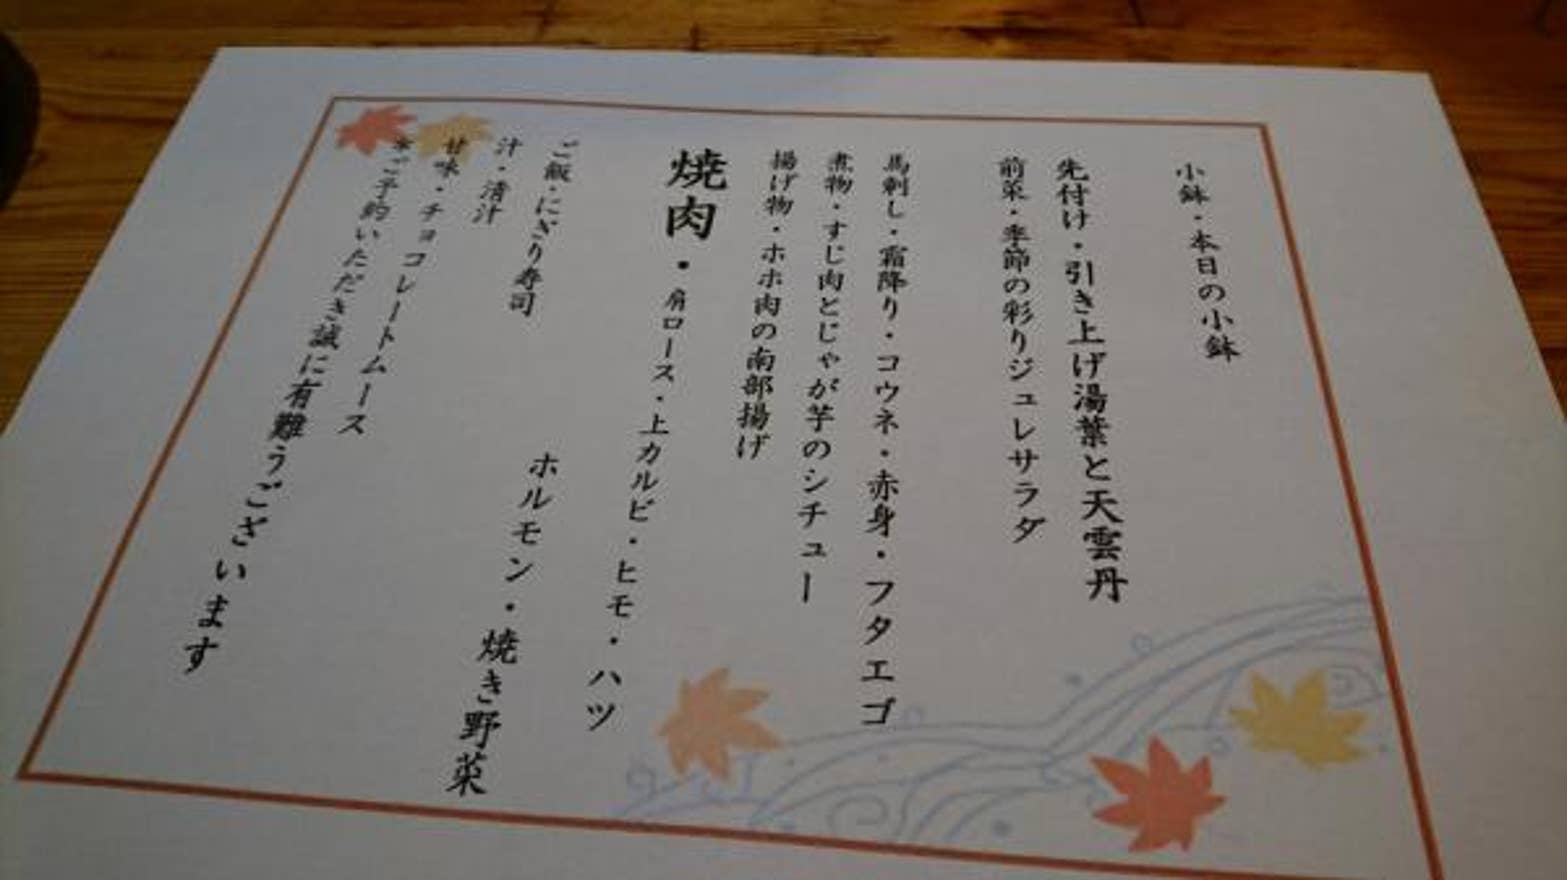 小鉢・本日の小鉢
先付け・引き上げ湯葉と天雲丹
前菜・季節の彩りジュレサラダ
馬刺し・霜降り・コウネ・赤身・フタエゴ
煮物・すじ肉とじゃが芋のシチュー
揚げ物・ホホ肉の南部揚げ
焼肉・肩ロース・上カルビ・ヒモ・ハツ
ホルモン・焼き野菜
ご飯・にぎり寿司
汁・清汁
甘味・チョコレートムース
※ご予約いただき誠に有難うございます